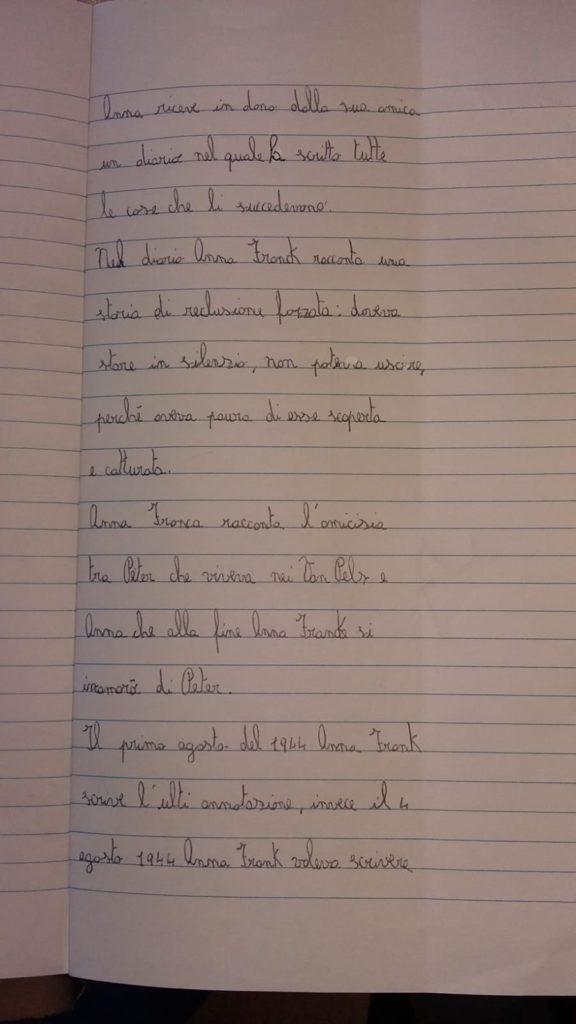 Anna riceve in dono dalla sua amica
un diario nel quale ha scritto tutte
le cose che li succedevano.
Nel diario Anna Franck racconta una
storia di reclusione forzata: doveva
stare in silenzio, non poteva uscire,
perché aveva paura di esse scoperta
e catturata.
Anna Franca racconta l'amicisia
tra Peter che viveva nei Van Pels e
Anna che alla fine Anna Frank si
innamorò di Peter.
Il primo agosto del 1944 Anna Frank
scrive l'ulti annotazione, invece il 4
agosto 1944 Anna Frank voleva scrivere